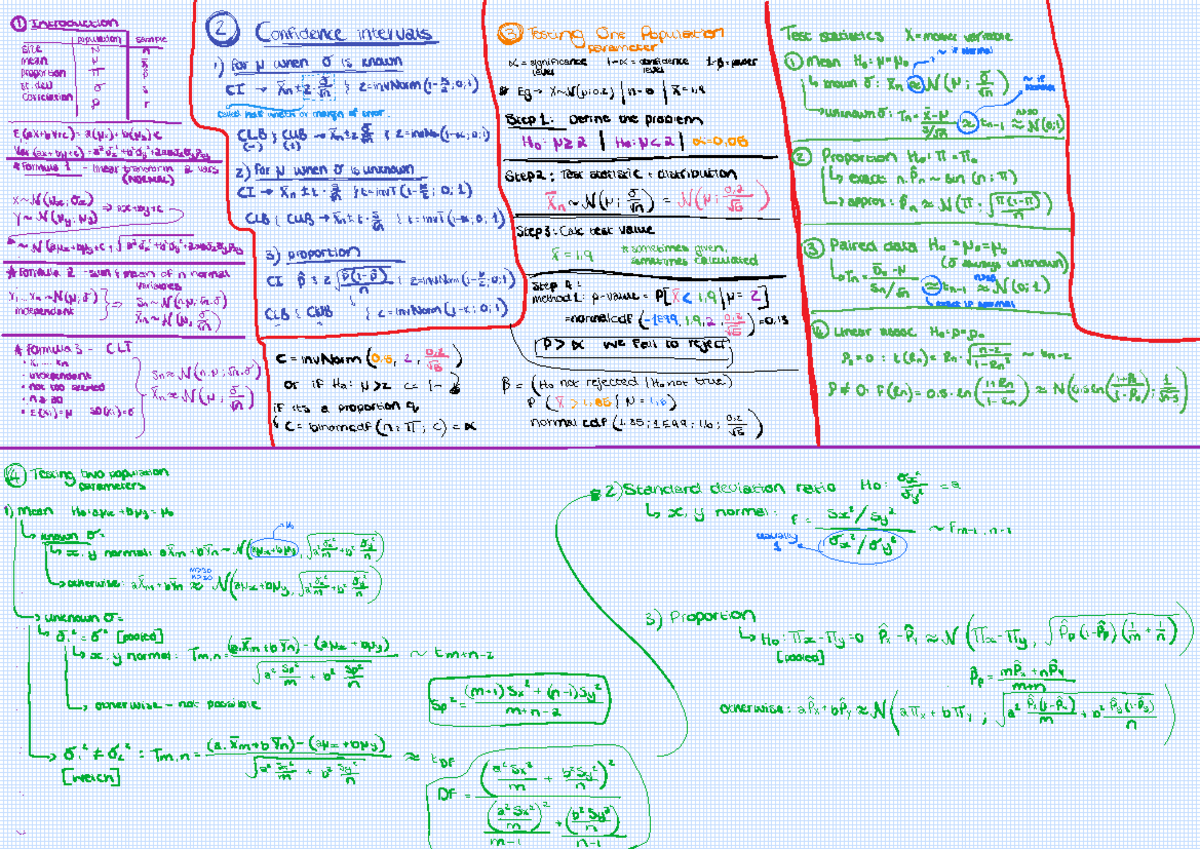 ① Introduction
population sample
size N n
mean μ x̄
proportion π p̂
st. dev σ s
correlation ρ r
E(ax+by+c) = a(μx) + b(μy) + c
* Formula 1 - linear transform 2 vars
(NORMAL)
X ~ N(μx; σx)
=> ax+by+c
* Formula 2 - sum & mean of n normal
variables
X1 ... Xn ~ N(μ, σ)
independent
=> Sn ~ N(n.μ; √n.σ)
X̄n ~ N(μ; σ/√n)
* Formula 3 - CLT
• X1 ... Xn
• independent
• not too skewed
• n ≥ 30
• E(Xi)=μ SD(Xi)=σ
Sn ≈ N(n.μ; √n.σ)
X̄n ≈ N(μ; σ/√n)
② Confidence intervals
1) for μ when σ is known
CI → x̄n ± z · σ/√n } z=invNorm(1-α/2; 0; 1)
called half width or margin of error.
CLB & CUB → x̄n ± z σ/√n } z=invNorm(1-α; 0; 1)
(-) (+)
2) for μ when σ is unknown
CI → x̄n ± t · s/√n } t=invT(1-α/2; 0; 1)
CLB & CUB → x̄n ± t · s/√n } t=invT(1-α; 0; 1)
3) proportion
CI p̂ ± z √(p̂(1-p̂)/n) } z=invNorm(1-α/2; 0; 1)
CLB & CUB } z=invNorm(1-α; 0; 1)
c = invNorm(0.05, 2, 0.2/√6)
or if Ha: μ>2
if it's a proportion q
↳ c = binomcdf(n; π; c) = α
③ Testing One Population
parameter
α = significance level 1-α = confidence level 1-β = power
# Eg → X~N(μ; 0.2) | n=6 | x̄=1.9
Step 1: Define the problem
H0: μ≥2 | Ha: μ<2 | α=0.05
Step 2: Test statistic + distribution
X̄n ~ N(μ; σ/√n) = N(μ; 0.2/√6)
Step 3: Calc test value
x̄ = 1.9 # sometimes given,
sometimes calculated
Step 4:
method 1: p-value = P[X̄<1.9|μ=2]
=normalcdf(-1E99, 1.9, 2, 0.2/√6)=0.13
P > α we fail to reject
β = (H0 not rejected | H0 not true)
P(X̄ > 1.85 | μ = 1.6)
normal cdf(1.85; 1E99; 1.6; 0.2/√6)
Test statistics X = makes variable
① Mean H0: μ=μ0
~ if normal
↳ known σ: X̄n ≈ N(μ; σ/√n)
→ unknown σ: Tn = (x̄-μ)/(s/√n) ≈ tn-1 ≈ N(0;1)
② Proportion H0: π = π0
↳ exact n.p̂n ~ bin(n; π)
→ approx: p̂n ≈ N(π; √(π(1-π)/n))
③ Paired data H0 = μD=μ0
(σ always unknown)
↳ Tn = (D̄n-μ)/(Sn/√n) ≈ tn-1 ≈ N(0;1)
exact if normal
④ Linear assoc. H0: ρ=ρ0
ρ0 = 0: t(Rn) = Rn · √((n-2)/(1-Rn²)) ~ tn-2
ρ ≠ 0: F(Rn) = 0.5 · ln((1+Rn)/(1-Rn)) ≈ N(0.5 ln((1+ρ0)/(1-ρ0)); 1/√(n-3))
④ Testing two population
parameters
1) Mean H0: aμx + bμy = μ0
↳ known σ =
↳ x, y normal: aX̄m + bȲn ~ N(aμx+bμy, √(a² σx²/m + b² σy²/n))
→ otherwise: aX̄m + bȲn ≈ N(aμx+bμy, √(a² σx²/m + b² σy²/n))
m≥30
n≥30
→ unknown σ =
↳ σ1² = σ2² [pooled]
↳ x, y normal: Tm,n = ((aX̄m+bȲn) - (aμx+bμy))/√(a² Sp²/m + b² Sp²/n) ~ tm+n-2
→ otherwise - not possible
Sp² = ((m-1)Sx² + (n-1)Sy²)/(m+n-2)
→ σ1² ≠ σ2² = Tm,n = ((a.X̄m+bȲn) - (aμx+bμy))/√(a² Sx²/m + b² Sy²/n) ≈ tDF
[welch]
DF = (a²Sx²/m + b²Sy²/n)² / ((a²Sx²/m)²/(m-1) + (b²Sy²/n)²/(n-1))
2) Standard deviation ratio H0: σx²/σy² = a
↳ x, y normal: F = (Sx²/Sy²)/(σx²/σy²) ~ Fm-1, n-1
usually 1
3) Proportion
↳ H0: πx-πy=0 p̂x-p̂y ≈ N(πx-πy, √(p̂p(1-p̂p)(1/m + 1/n)))
[pooled]
p̂p = (mp̂x+np̂y)/(m+n)
otherwise: ap̂x+bp̂y ≈ N(aπx+bπy; √(a² p̂x(1-p̂x)/m + b² p̂y(1-p̂y)/n))